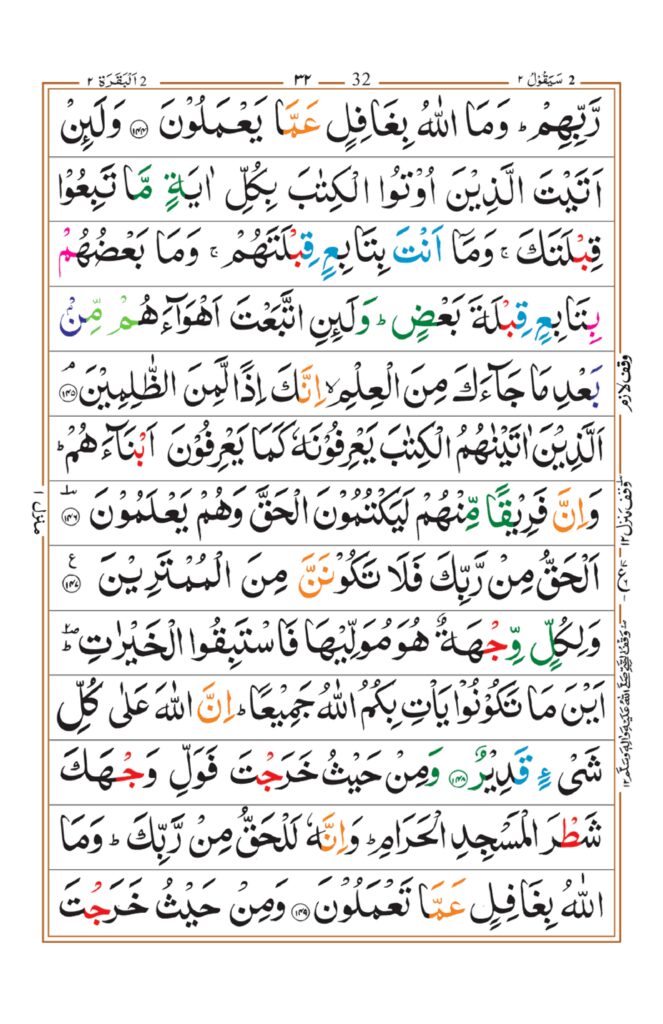 2 اَلْبَقَرَة ٢
٣٢ 32
2 سَيَقُوْلُ ٢
رَّبِّهِمْ ؕ وَمَا اللّٰهُ بِغَافِلٍ عَمَّا يَعْمَلُوْنَ ﴿۱۴۴﴾ وَلَىِٕنْ
اَتَيْتَ الَّذِيْنَ اُوْتُوا الْكِتٰبَ بِكُلِّ اٰيَةٍ مَّا تَبِعُوْا
قِبْلَتَكَ ۚ وَمَاۤ اَنْتَ بِتَابِعٍ قِبْلَتَهُمْ ۚ وَمَا بَعْضُهُمْ
بِتَابِعٍ قِبْلَةَ بَعْضٍ ؕ وَلَىِٕنِ اتَّبَعْتَ اَهْوَآءَهُمْ مِّنْۢ
بَعْدِ مَا جَآءَكَ مِنَ الْعِلْمِ ۙ اِنَّكَ اِذًا لَّمِنَ الظّٰلِمِيْنَ ۘ ﴿۱۴۵﴾
اَلَّذِيْنَ اٰتَيْنٰهُمُ الْكِتٰبَ يَعْرِفُوْنَهٗ كَمَا يَعْرِفُوْنَ اَبْنَآءَهُمْ ؕ
وَاِنَّ فَرِيْقًا مِّنْهُمْ لَيَكْتُمُوْنَ الْحَقَّ وَهُمْ يَعْلَمُوْنَ ﴿۱۴۶﴾
اَلْحَقُّ مِنْ رَّبِّكَ فَلَا تَكُوْنَنَّ مِنَ الْمُمْتَرِيْنَ ﴿۱۴۷﴾ ع
وَلِكُلٍّ وِّجْهَةٌ هُوَ مُوَلِّيْهَا فَاسْتَبِقُوا الْخَيْرٰتِ ؕ
اَيْنَ مَا تَكُوْنُوْا يَاْتِ بِكُمُ اللّٰهُ جَمِيْعًا ؕ اِنَّ اللّٰهَ عَلٰى كُلِّ
شَىْءٍ قَدِيْرٌ ﴿۱۴۸﴾ وَمِنْ حَيْثُ خَرَجْتَ فَوَلِّ وَجْهَكَ
شَطْرَ الْمَسْجِدِ الْحَرَامِ ؕ وَاِنَّهٗ لَلْحَقُّ مِنْ رَّبِّكَ ؕ وَمَا
اللّٰهُ بِغَافِلٍ عَمَّا تَعْمَلُوْنَ ﴿۱۴۹﴾ وَمِنْ حَيْثُ خَرَجْتَ
وقف لازم
وقف منزل ١٢
وقف النبي صلى الله عليه واله وسلم ١٢
منزل ١